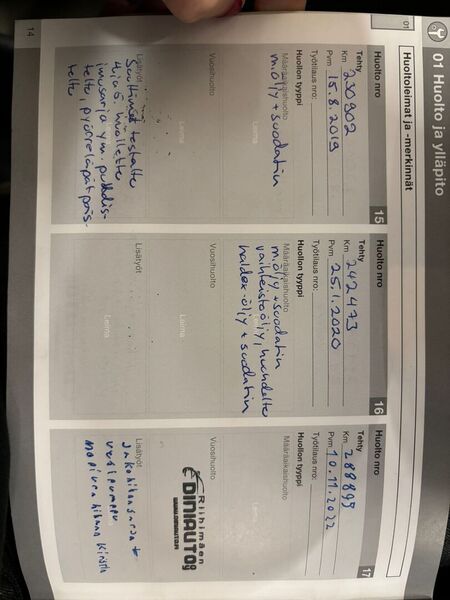 01 Huolto ja ylläpito
01
Huoltoleimat ja -merkinnät
Huolto nro 15
Tehty
Km 230902
Pvm 15.8.2019
Työtilaus nro:
Huollon tyyppi
Määräaikaishuolto
m.öljy + suodatin
Leima
Vuosihuolto
Leima
Lisätyöt
Suuttimet testattu
imusarja ym. puhdis-
Huolto nro 16
Tehty
Km 242473
Pvm 25.1.2020
Työtilaus nro:
Huollon tyyppi
Määräaikaishuolto
m.öljy + suodatin
vaihteistoöljy, huuhdeltu
haldex-öljy + suodatin
Vuosihuolto
Leima
Lisätyöt
Huolto nro 17
Tehty
Km 288899
Pvm 10.11.2022
Työtilaus nro:
Huollon tyyppi
Määräaikaishuolto
Vuosihuolto
Riihimäen
DINIAUTO
Lisätyöt
Jakohihnasarja +
vesipumppu
14